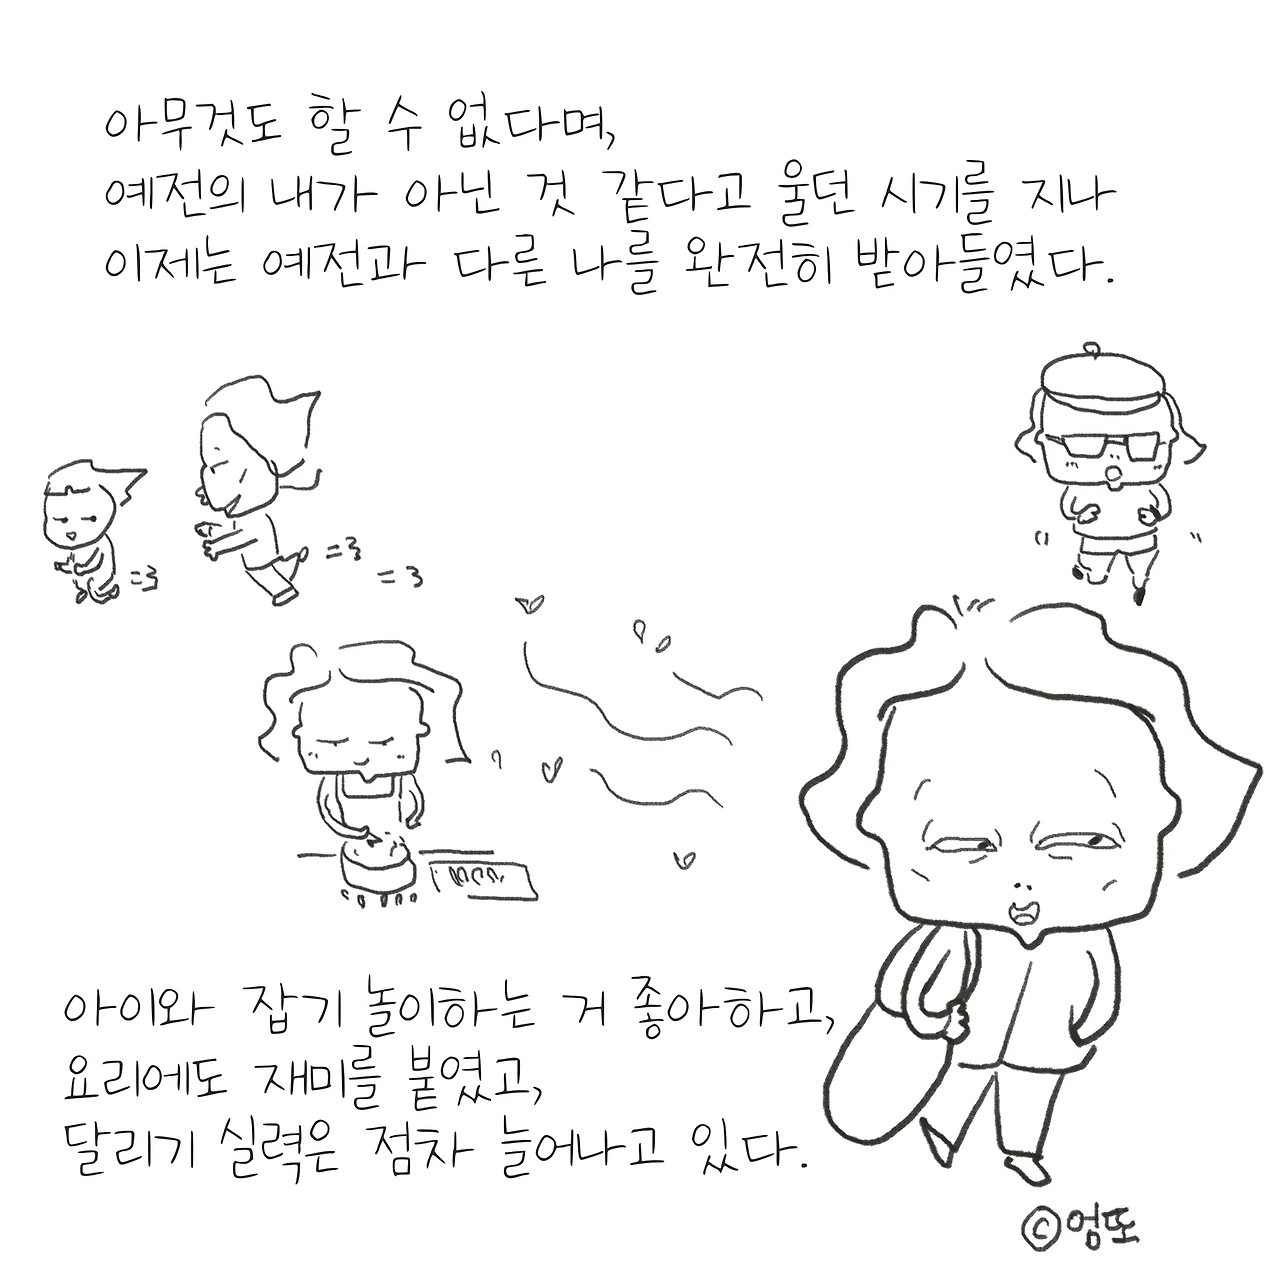 아무것도 할 수 없다며,
예전의 내가 아닌 것 같다고 울던 시기를 지나
이제는 예전과 다른 나를 완전히 받아들였다.
=3
=3
=3
아이와 잡기 놀이하는 거 좋아하고,
요리에도 재미를 붙였고,
달리기 실력은 점차 늘어나고 있다.
©엄또